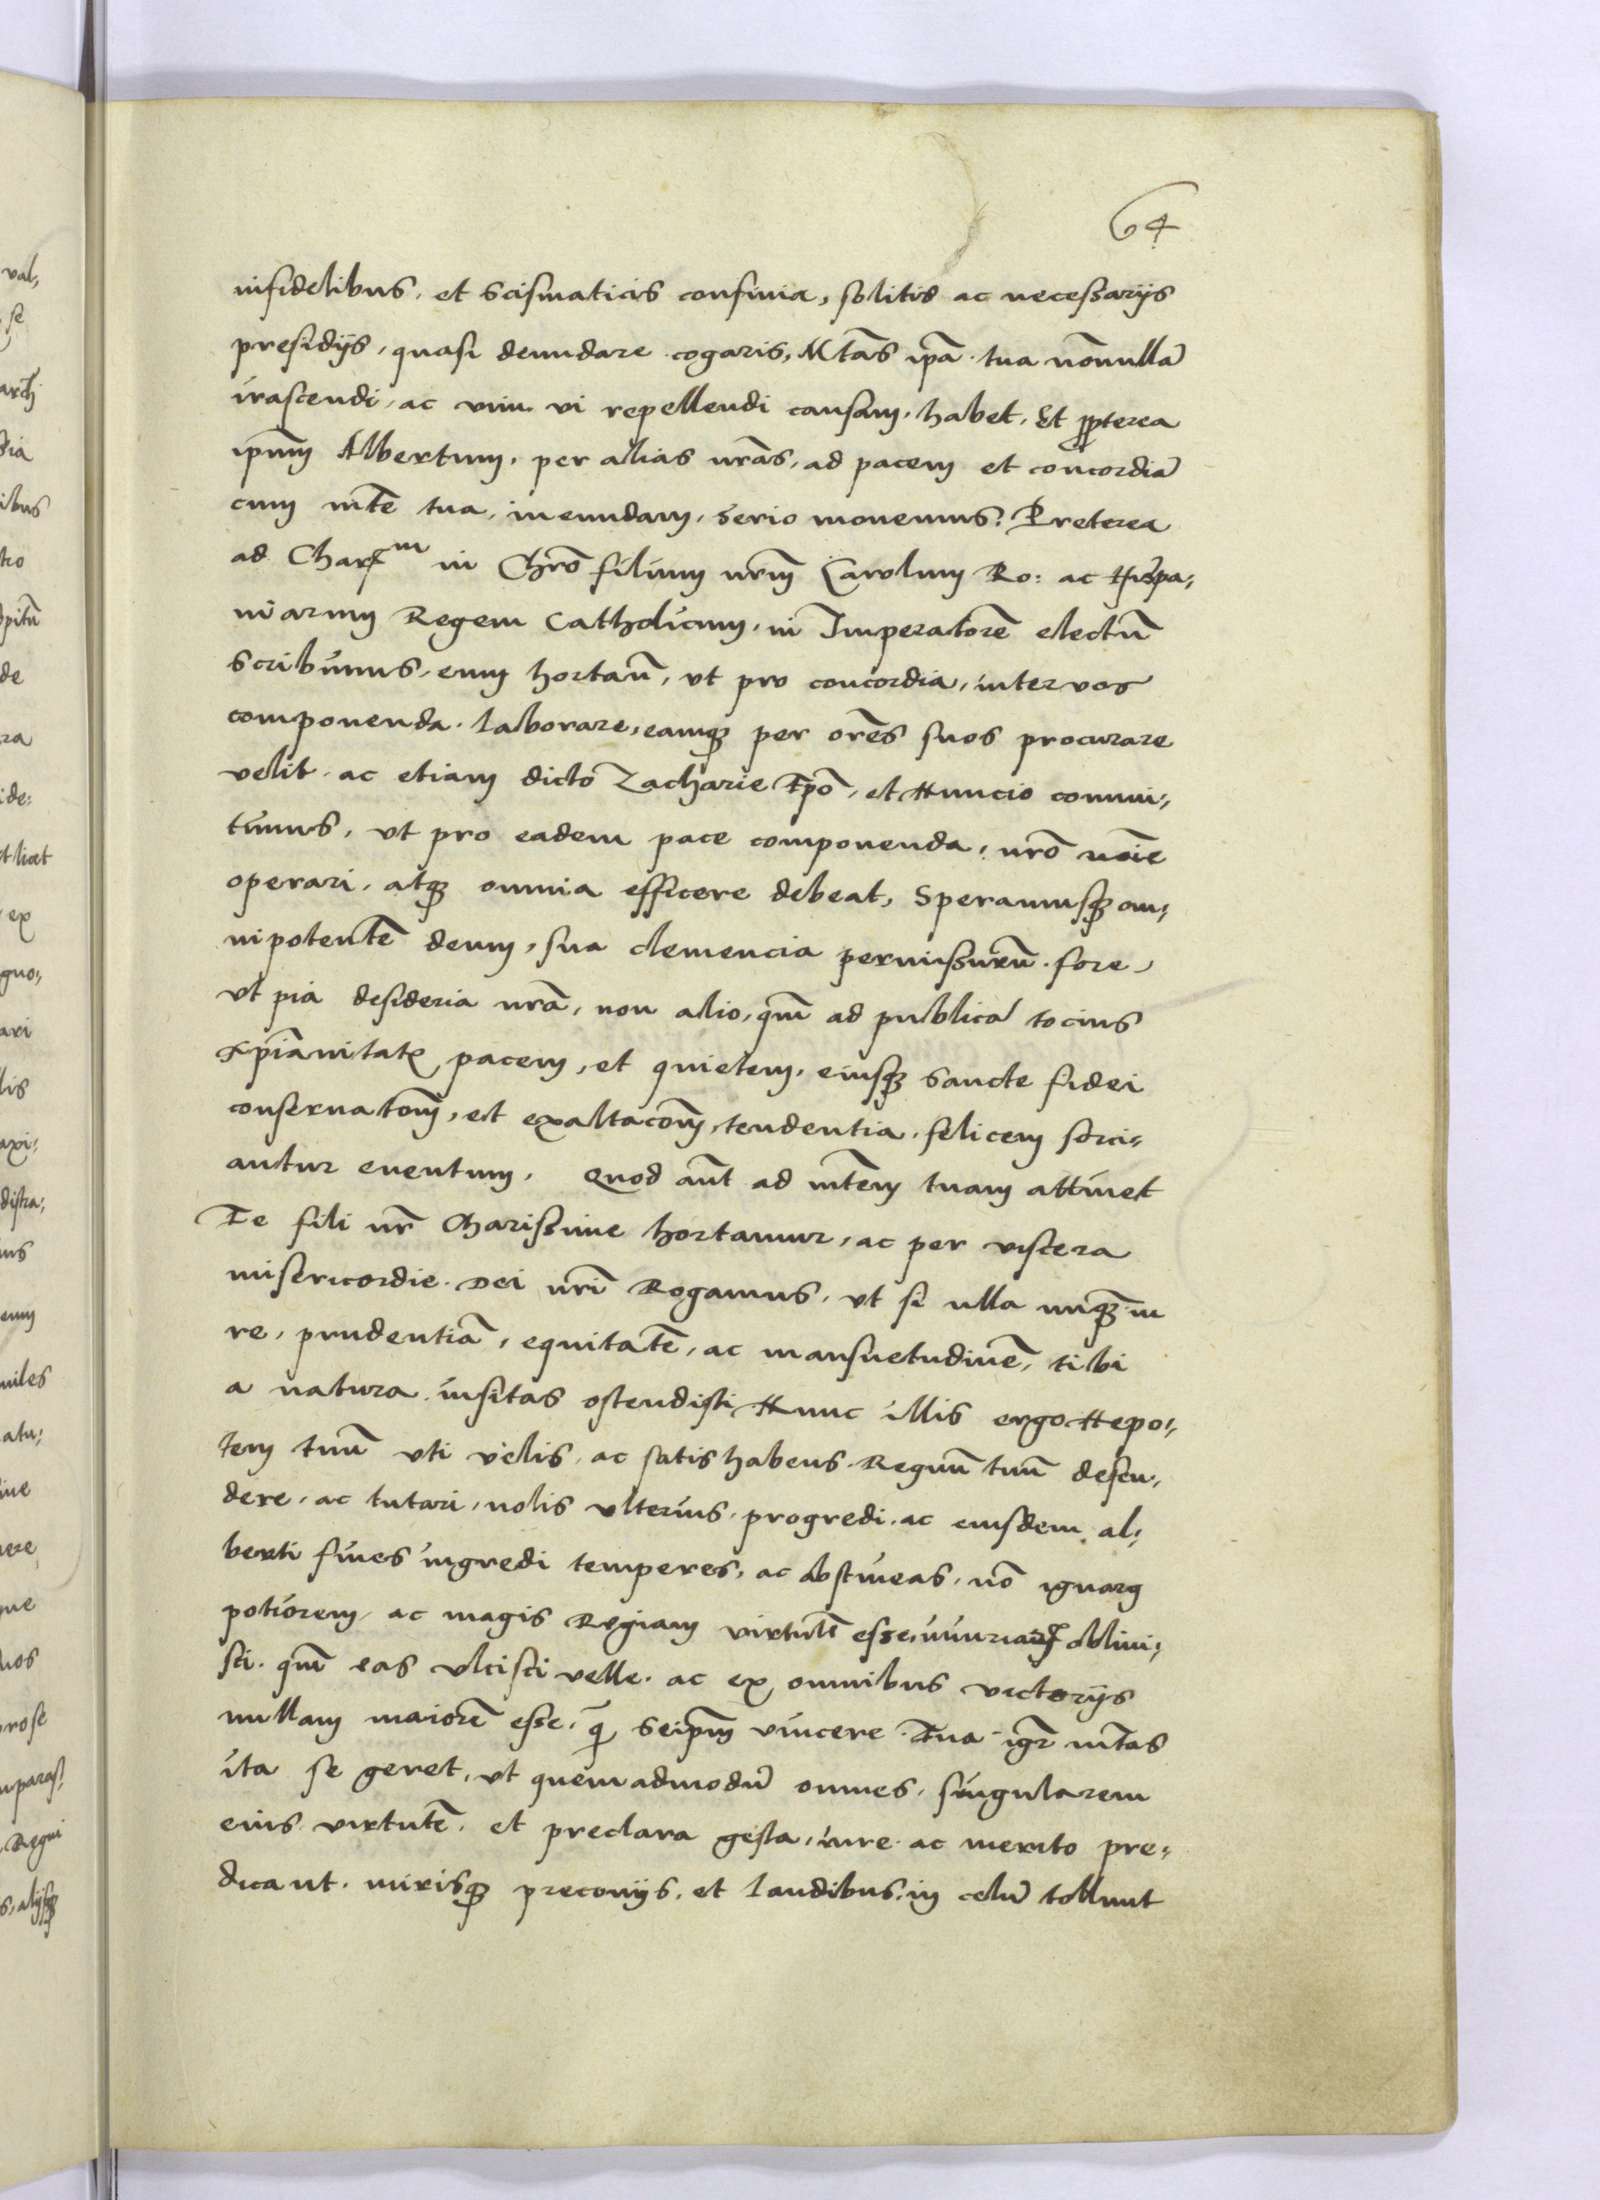 64
infidelibus, et Scismaticis confinia, solitis ac necessarijs
presidijs, quasi denudare cogaris, Mtās ipā tua nōnullā
irascendi, ac vim vi repellendi causam, habet, Et ꝓpterea
ipm̄ Albertum, per alias nrās, ad pacem et concordiā
cum mtē tua, ineundam, serio monemus: Preterea
ad Charᵐ in Chrō filium nrm̄ Carolum Ro: ac Hispa-
niarum Regem Catholicum, in Imperatorē electū
scribimus, eum hortan̄, vt pro concordia, inter vos
componenda laborare, eamqꝫ per orēs suos procurare
velit ac etiam dicto Zacharie Epō, et Nuncio commi-
timus, vt pro eadem pace componenda, nrō noīe
operari, atqꝫ omnia efficere debeat, Speramusqꝫ om-
nipotentē deum, sua clemencia permissurū fore,
vt pia desideria nrā, non alio, qm̄ ad publicā tocius
Xpīanitatꝭ pacem, et quietem, eiusqꝫ Sancte fidei
conseruatom̄, et exaltacom̄, tendentia felicem sorci-
antur euentum, Quod aūt ad mtēm tuam attinet
Te fili nr̄ Charissime hortamur, ac per viscera
misericordie Dei nrī Rogamus, vt si vlla vnqꝫ in
re, prudentiā, equitatē, ac mansuetudinē, tibi
a natura insitas ostendisti Nunc illis ergo Nepo-
tem tuū vti velis, ac satis habens Regnū tuū defen-
dere, ac tutari, nolis vlterius progredi ac eiusdem al-
berti fines ingredi temperes, ac abstineas, nō ignarꝯ
potiorem ac magis Regiam virtutē esse, iniuriarꝝ obliui-
sci qm̄ eas vlcisci velle ac ex omnibus victorijs
nullam maiorē esse, q̄ seipm̄ vincere Tua igr̄ mtās
ita se geret, vt quemadmodū omnes, singularem
eius virtutē, et preclara gesta, iure ac merito pre-
dicant mirisqꝫ preconijs, et laudibus, in celū tollunt